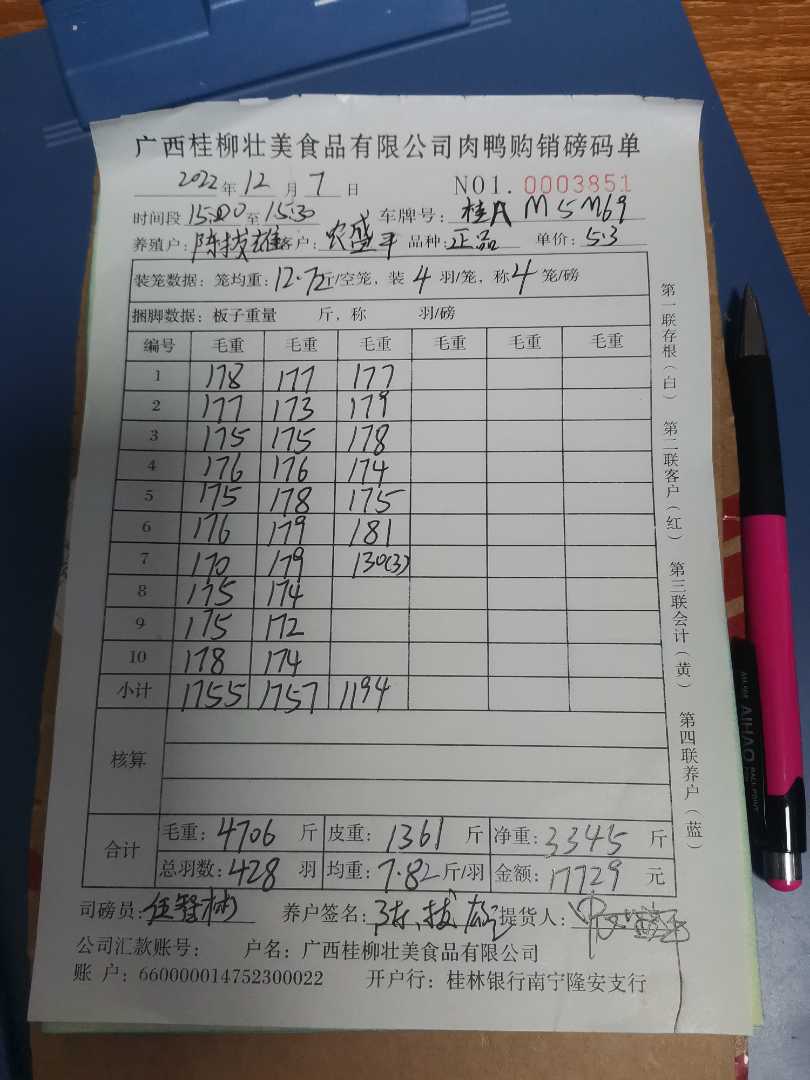 广西桂柳壮美食品有限公司肉鸭购销磅码单
2022年12月7日 NO1.0003851
时间段 15:00至15:30 车牌号：桂A M5M69
养殖户：陈拔雄 客户：农盛平 品种：正品 单价：5.3
装笼数据：笼均重：12.72斤/空笼，装4羽/笼，称4笼/磅
捆脚数据：板子重量 斤，称 羽/磅
编号 毛重 毛重 毛重 毛重 毛重 毛重
1 178 177 177
2 177 173 179
3 175 175 178
4 176 176 174
5 175 178 175
6 176 179 181
7 170 179 130(3)
8 175 174
9 175 172
10 178 174
小计 1755 1757 1194
核算
合计 毛重：4706斤 皮重：1361斤 净重：3345斤
总羽数：428羽 均重：7.82斤/羽 金额：17729元
司磅员： 养户签名：陈拔雄 提货人：
公司汇款账号： 户名：广西桂柳壮美食品有限公司
账户：660000014752300022 开户行：桂林银行南宁隆安支行
第一联存根（白） 第二联客户（红） 第三联会计（黄） 第四联养户（蓝）
AIHAO
BALL POINT